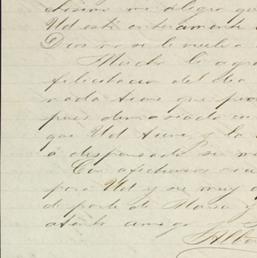 me alegro que
Ud está enteramente
Dios no se le vuelva
Mucho le agra
felicitacion del dia
nada tiene que
pues demasiado
que Ud tiene, y la
a dispensado su
Con afectuosos
para Ud y su muy
de parte de Maria y
atento amigo